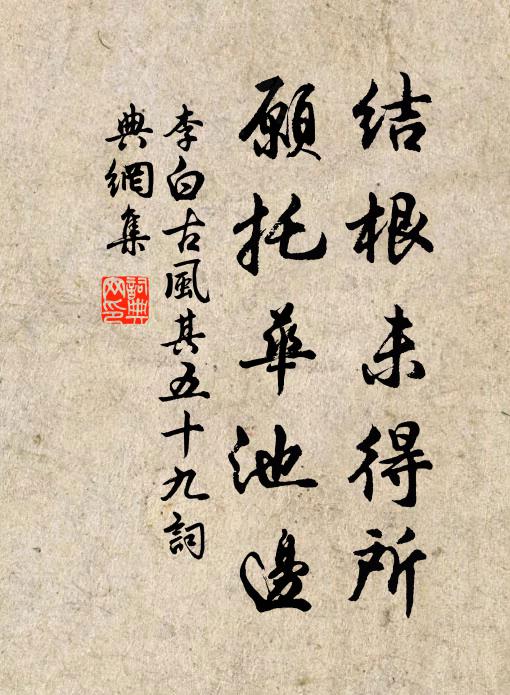 結根未得所
願托華池邊
李白古風其五十九詞
典網集
詞典
网印